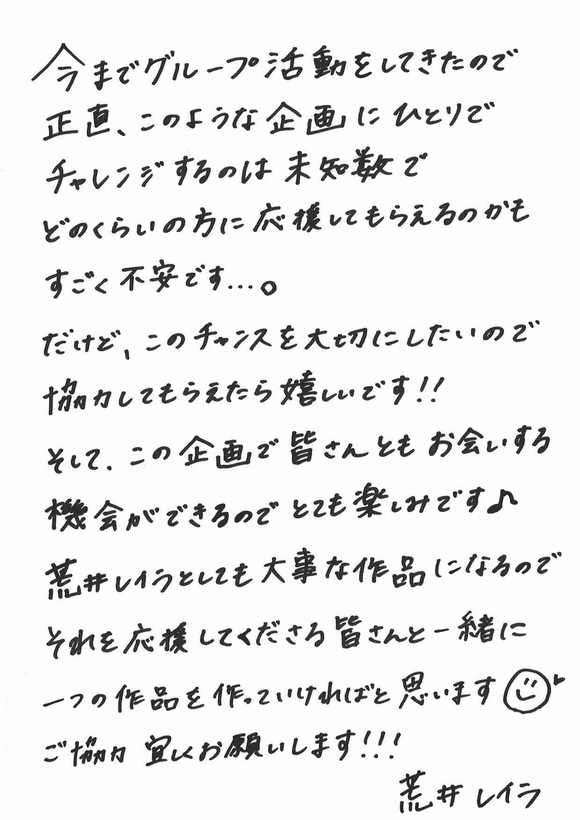 今までグループ活動をしてきたので
正直、このような企画にひとりで
チャレンジするのは未知数で
どのくらいの方に応援してもらえるのかも
すごく不安です...。
だけど、このチャンスを大切にしたいので
協力してもらえたら嬉しいです!!
そして、この企画で皆さんともお会いする
機会ができるのでとても楽しみです♪
荒井レイラとしても大事な作品になるので
それを応援してくださる皆さんと一緒に
一つの作品を作っていければと思います
ご協力 宜しくお願いします!!!
荒井レイラ